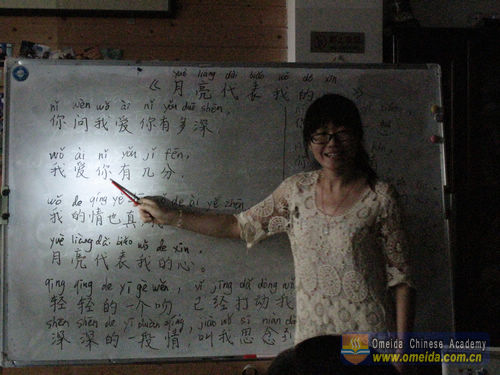 yuè liàng dài biǎo wǒ de xīn
《月亮代表我的
nǐ wèn wǒ ài nǐ yǒu duō shēn,
你问我爱你有多深,
wǒ ài nǐ yǒu jǐ fēn,
我爱你有几分.
wǒ de qíng yě ài yě zhēn
我的情也真
yuè liàng dài biǎo wǒ de xīn.
月亮代表我的心。
qīng qīng de yí gè wěn, yǐ jīng dǎ dòng wǒ
轻轻的一个吻 已经打动我
shēn shēn de yí duàn qíng, jiào wǒ sī niàn dào
深深的一段情 叫我思念到
Omeida Chinese Academy
www.omeida.com.cn